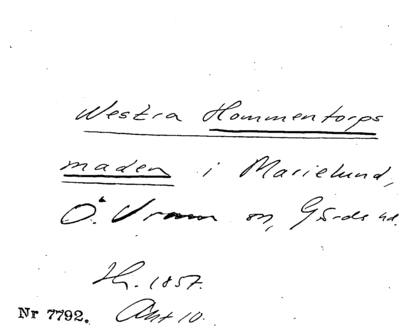 Westra Hommentorps
maden i Marielund,
Ö. Vram sn, Gärds hd.
Hr. 1857.
Nr 7792. Akt 10.